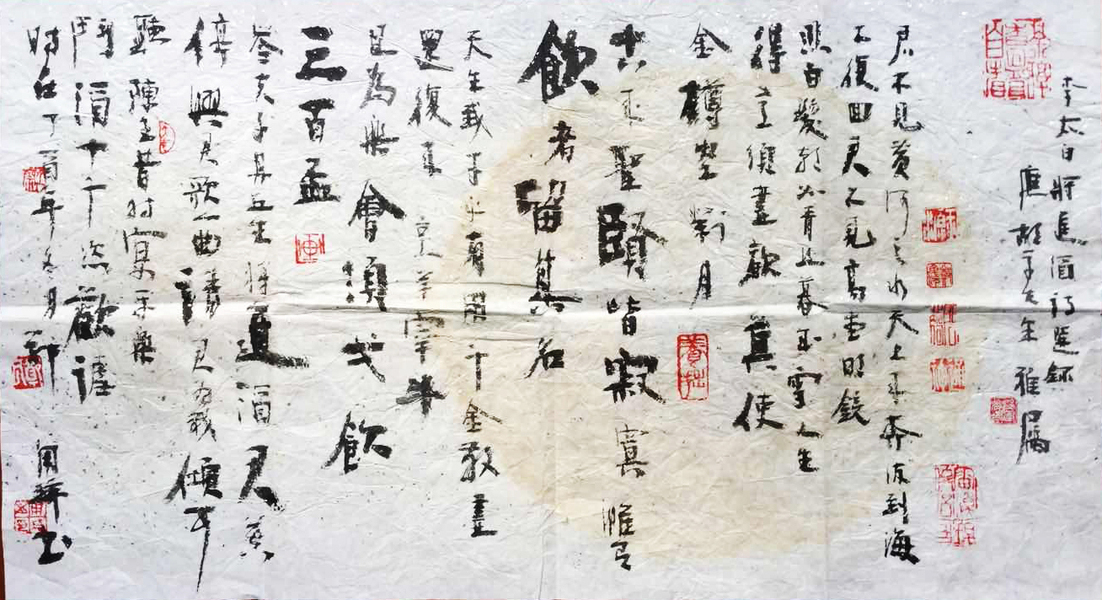 李太白將進酒詩選録
應先生雅屬
君不見黃河之水天上來奔流到海
不復回君不見高堂明鏡
悲白髮朝如青絲暮成雪人生
得意須盡歡莫使
金樽空對月
古來聖賢皆寂寞惟有
飲者留其名
天生我才必有用千金散盡
還復來烹羊宰牛
且為樂會須一飲
三百盃
岑夫子丹丘生將進酒君莫
停與君歌一曲請君為我傾耳
聽陳王昔時宴平樂
鬥酒十千恣歡謔
時在丁酉年冬月書